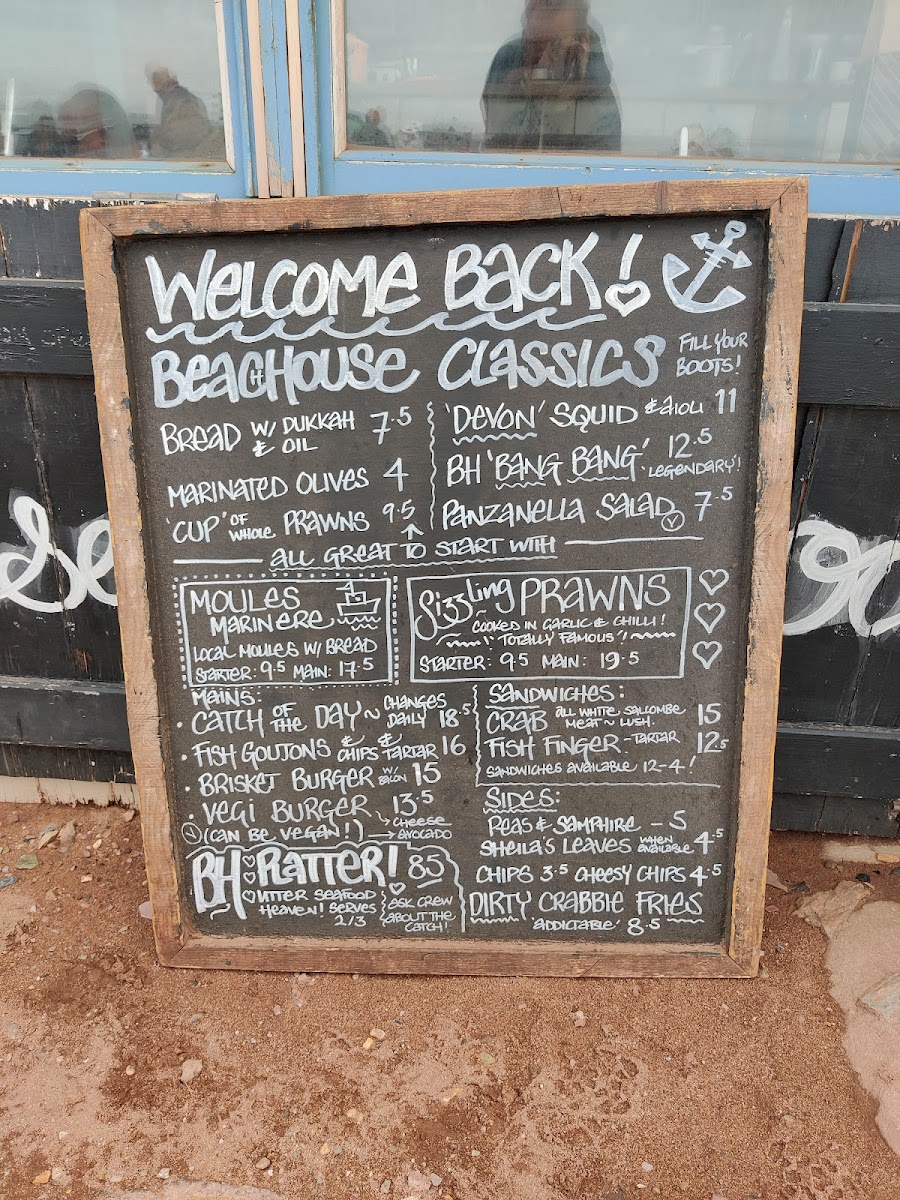 WELCOME BACK!
BEACHOUSE CLASSICS
FILL YOUR
BOOTS!
BREAD W/ DUKKAH
& OIL 7.5
MARINATED OLIVES 4
'CUP' OF WHOLE PRAWNS 9.5
'DEVON' SQUID & AIOLI 11
BH 'BANG BANG' 12.5
'LEGENDARY'!
PANZANELLA SALAD V 7.5
ALL GREAT TO START WITH
MOULES
MARINERE
LOCAL MOULES W/ BREAD
STARTER: 9.5 MAIN: 17.5
Sizzling PRAWNS
COOKED IN GARLIC & CHILLI!
"TOTALLY FAMOUS"!
STARTER: 9.5 MAIN: 19.5
MAINS:
• CATCH OF THE DAY ~ CHANGES DAILY 18.5
• FISH GOUJONS & CHIPS & TARTAR 16
• BRISKET BURGER W/ BACON 15
• VEGI BURGER 13.5
V (CAN BE VEGAN!) → CHEESE
→ AVOCADO
SANDWICHES:
CRAB ALL WHITE SALCOMBE
MEAT ~ LUSH. 15
FISH FINGER - TARTAR 12.5
SANDWICHES AVAILABLE 12-4!
SIDES:
PEAS & SAMPHIRE - 5
SHEILA'S LEAVES WHEN AVAILABLE 4.5
CHIPS 3.5 CHEESY CHIPS 4.5
DIRTY CRABBIE FRIES
ADDICTABLE' 8.5
BH PLATTER! 85
UTTER SEAFOOD
HEAVEN! SERVES
2/3
ASK CREW
ABOUT THE
CATCH!